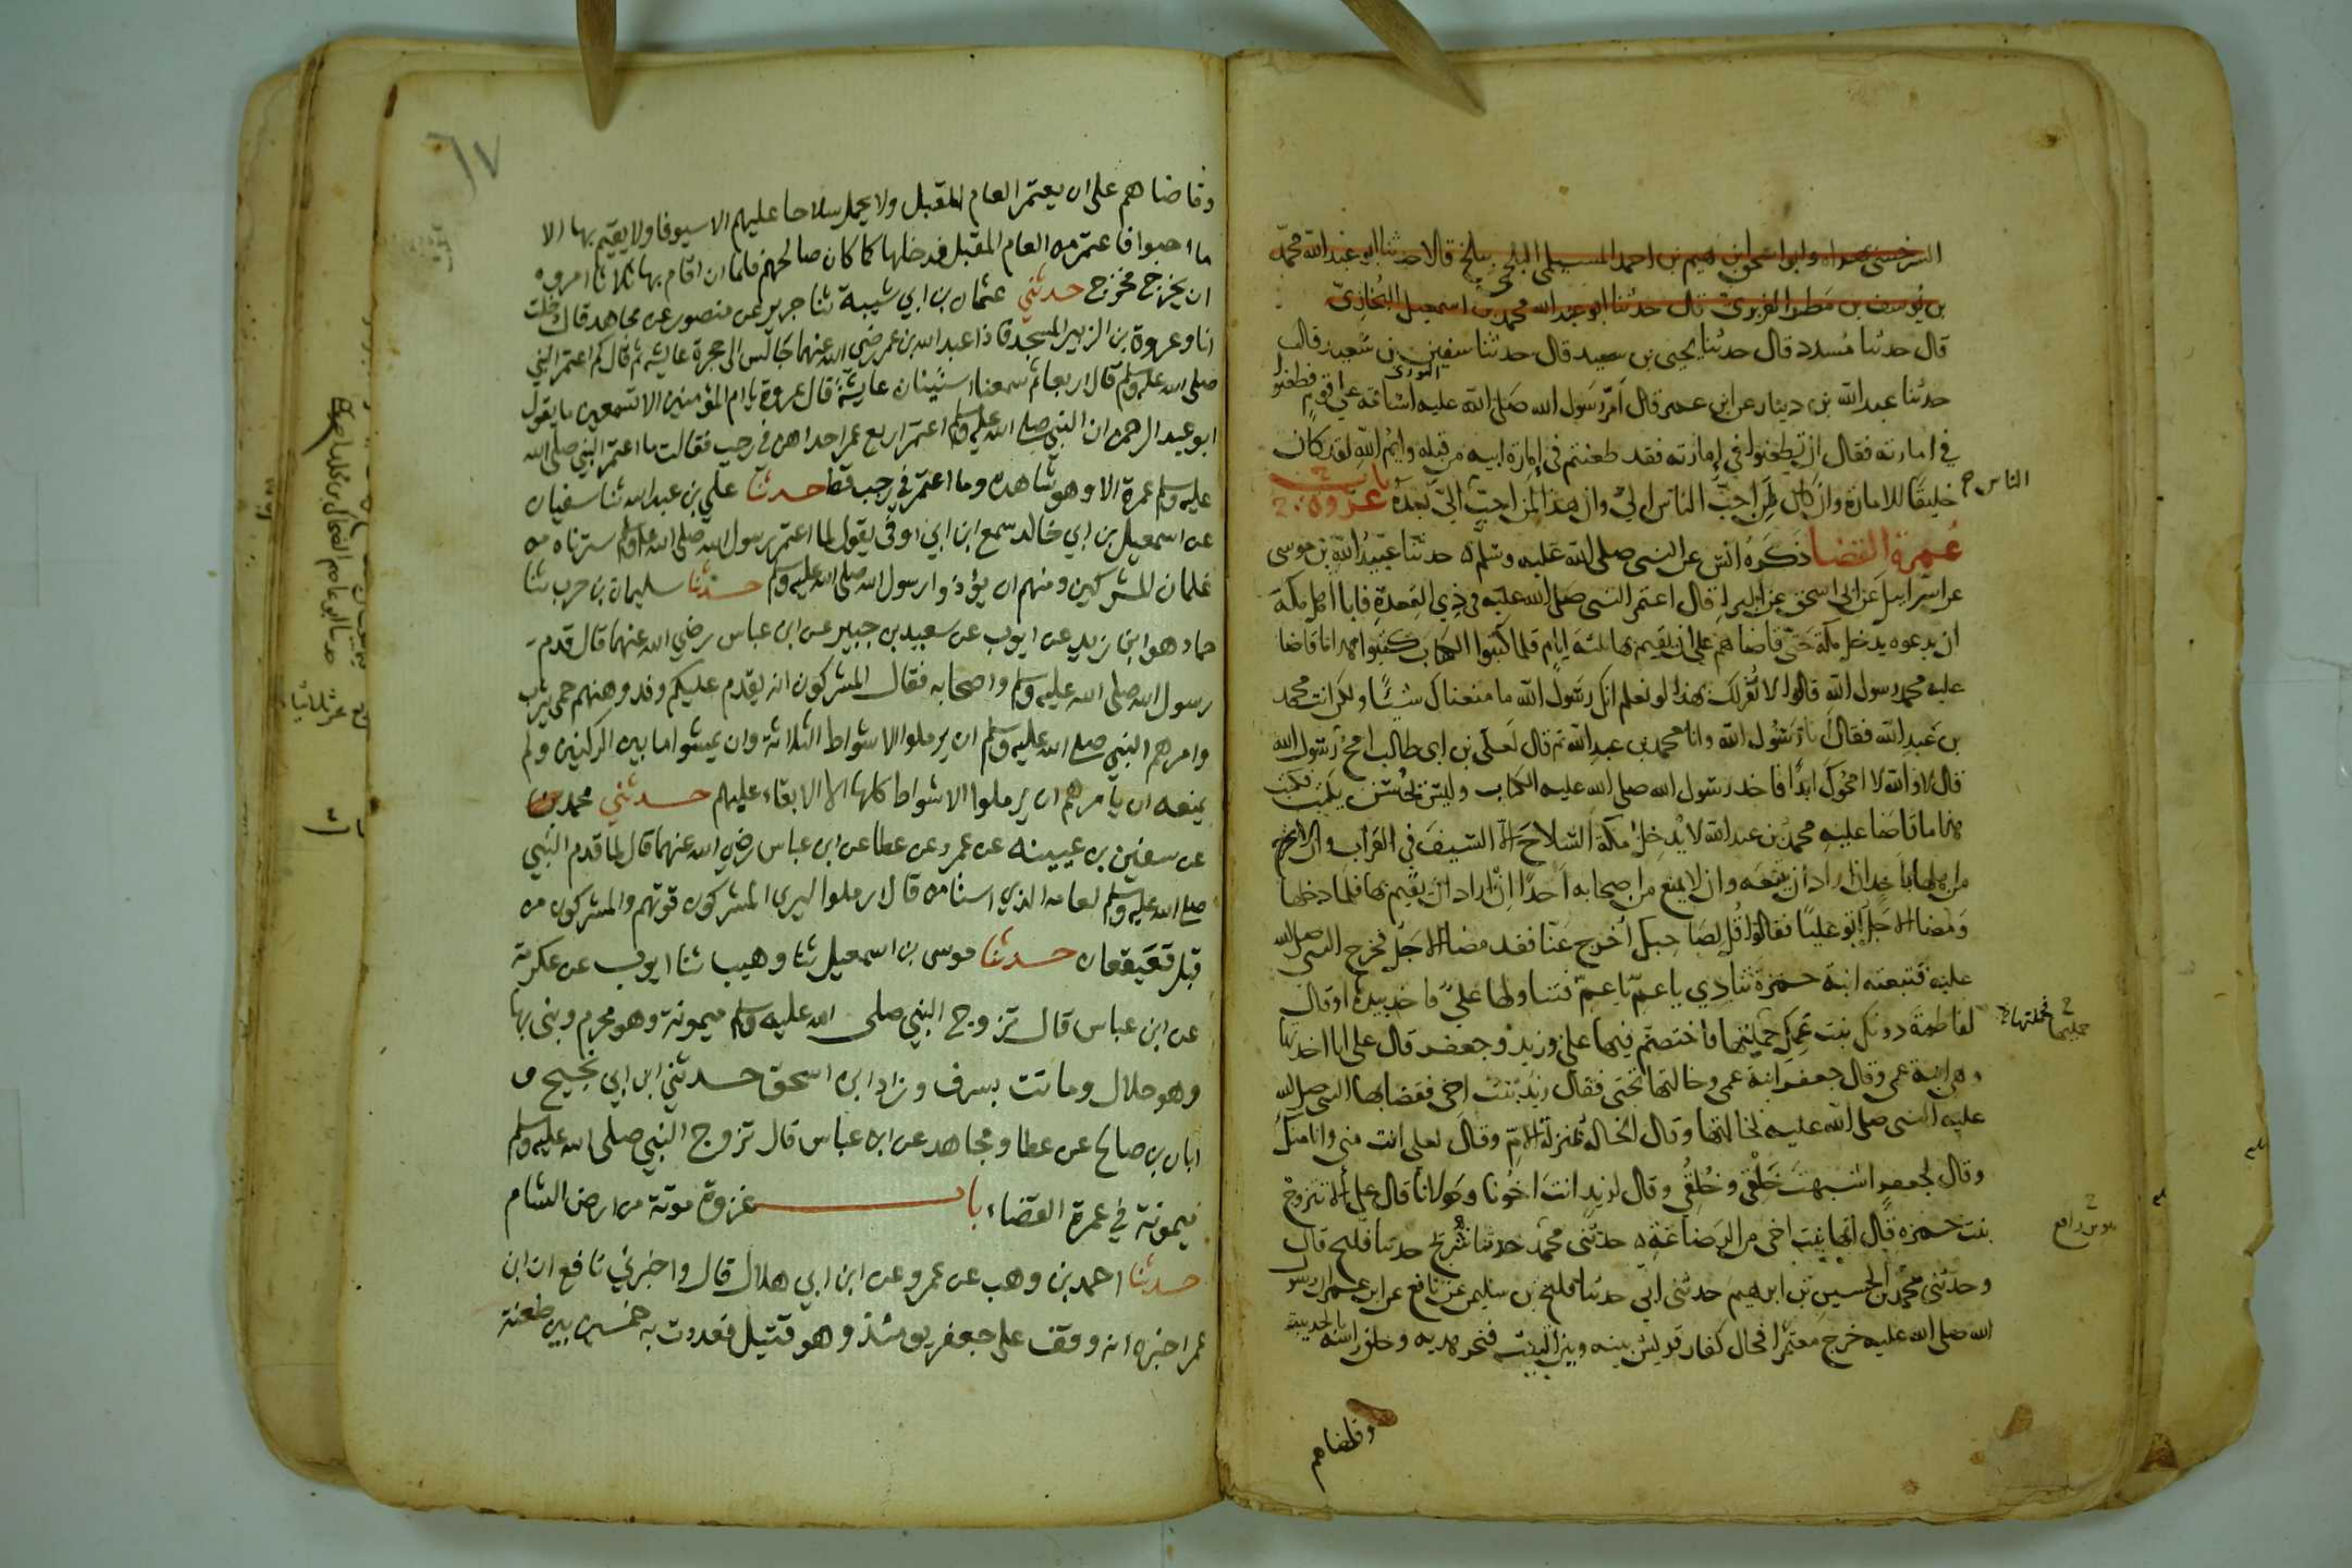 السرخسي بهراه وابو اسحق ابرهيم بن احمد المستملي البلخي ببلخ قالا حدثنا ابو عبد الله محمد
بن يوسف بن مطر الفربري قال حدثنا ابو عبد الله محمد بن اسمعيل البخاري
قال حدثنا مسدد قال حدثنا يحيى بن سعيد قال حدثنا سفين بن سعيد قال
الثوري
حدثنا عبد الله بن دينار عن ابن عمر قال امر رسول الله صلى الله عليه اسامة على قوم فطعنوا
في امارته فقال ان تطعنوا في امارته فقد طعنتم في امارة ابيه من قبله وايم الله لقد كان
خليقا للامارة وان كان من احب الناس الي وان هذا لمن احب الي بعده باب غزوة
الناس
عمرة القضا ذكره انس عن النبي صلى الله عليه وسلم حدثنا عبيد الله بن موسى
عن اسرائيل عن ابي اسحق عن البراء قال اعتمر النبي صلى الله عليه في ذي القعدة فابا اهل مكة
ان يدعوه يدخل مكة حتى قاضاهم على ان يقيم بها ثلثة ايام فلما كتبوا الكتاب كتبوا هذا ما قاضا
عليه محمد رسول الله قالوا لا نقر لك بهذا لو نعلم انك رسول الله ما منعناك شيئا ولكن انت محمد
بن عبد الله فقال انا رسول الله وانا محمد بن عبد الله ثم قال لعلي بن ابي طالب امح رسول الله
قال لا والله لا امحوك ابدا فاخذ رسول الله صلى الله عليه الكتاب وليس يحسن يكتب فكتب
هذا ما قاضا عليه محمد بن عبد الله لا يدخل مكة السلاح الا السيف في القراب وان لا يخرج
من اهلها باحد ان اراد ان يتبعه وان لا يمنع من اصحابه احدا ان اراد ان يقيم بها فلما دخلها
ومضا الاجل اتو عليا فقالوا قل لصاحبك اخرج عنا فقد مضا الاجل فخرج النبي صلى الله
عليه فتبعته ابنة حمزة تنادي يا عم يا عم فتناولها علي فاخذ بيدها وقال
لفاطمة دونك بنت عمك حمليها فاختصم فيها علي وزيد وجعفر قال علي انا اخذتها
حمليها فحملتها
وهي ابنة عمي وقال جعفر ابنة عمي وخالتها تحتي فقال زيد بنت اخي فقضا بها النبي صلى الله
عليه النبي صلى الله عليه لخالتها وقال الخالة بمنزلة الام وقال لعلي انت مني وانا منك
وقال لجعفر اشبهت خلقي وخلقي وقال لزيد انت اخونا ومولانا قال علي الا تتزوج
بنت حمزه قال انها بنت اخي من الرضاعة حدثني محمد حدثنا شريح حدثنا فليح قال
وحدثني محمد بن الحسين بن ابرهيم حدثني ابي حدثنا فليح بن سليمن عن نافع عن ابن عمر ان رسول
الله صلى الله عليه خرج معتمرا فحال كفار قريش بينه وبين البيت فنحر هديه وحلق راسه بالحديبية
وقاضاهم
وقاضاهم على ان يعتمر العام المقبل ولا يحمل سلاحا عليهم الا سيوفا ولا يقيم بها الا
ما احبوا فاعتمر من العام المقبل فدخلها كما كان صالحهم فلما ان اقام بها ثلاثا امروه
ان يخرج فخرج حدثني عثمان بن ابي شيبة ثنا جرير عن منصور عن مجاهد قال دخلت
انا وعروة بن الزبير المسجد فاذا عبد الله بن عمر رضي الله عنهما جالس الى حجرة عايشه ثم قال كم اعتمر النبي
صلى الله عليه وسلم قال اربعا ثم سمعنا استنان عايشة قال عروة يا ام المؤمنين الا تسمعين ما يقول
ابو عبد الرحمن ان النبي صلى الله عليه وسلم اعتمر اربع عمر احداهن في رجب فقالت ما اعتمر النبي صلى الله
عليه وسلم عمرة الا وهو شاهده وما اعتمر في رجب قط حدثنا علي بن عبد الله ثنا سفيان
عن اسمعيل بن ابي خالد سمع ابن ابي اوفى يقول لما اعتمر رسول الله صلى الله عليه وسلم سترناه من
غلمان المشركين ومنهم ان يؤذوا رسول الله صلى الله عليه وسلم حدثنا سليمان بن حرب ثنا
حماد هو ابن زيد عن ايوب عن سعيد بن جبير عن ابن عباس رضي الله عنهما قال قدم
رسول الله صلى الله عليه وسلم واصحابه فقال المشركون انه يقدم عليكم وفد وهنهم حمى يثرب
وامرهم النبي صلى الله عليه وسلم ان يرملوا الاشواط الثلاثة وان يمشوا ما بين الركنين ولم
يمنعه ان يامرهم ان يرملوا الاشواط كلها الا الابقاء عليهم حدثني محمد
عن سفين بن عيينه عن عمرو عن عطا عن ابن عباس رضي الله عنهما قال لما قدم النبي
صلى الله عليه وسلم لعامه الذي استامن قال ارملوا ليرى المشركون قوتهم والمشركون من
قبل قعيقعان حدثنا موسى بن اسمعيل ثنا وهيب ثنا ايوب عن عكرمة
عن ابن عباس قال تزوج النبي صلى الله عليه وسلم ميمونة وهو محرم وبنى بها
وهو حلال وماتت بسرف وزاد ابن اسحق حدثني ابن ابي نجيح و
ابان بن صالح عن عطا ومجاهد عن ابن عباس قال تزوج النبي صلى الله عليه وسلم
ميمونة في عمرة القضاء باب غزوة موتة من ارض الشام
حدثنا احمد بن وهب عن عمرو عن ابن ابي هلال قال واخبرني نافع ان ابن
عمر اخبره انه وقف على جعفر يومئذ وهو قتيل فعددت به خمسين بين طعنة